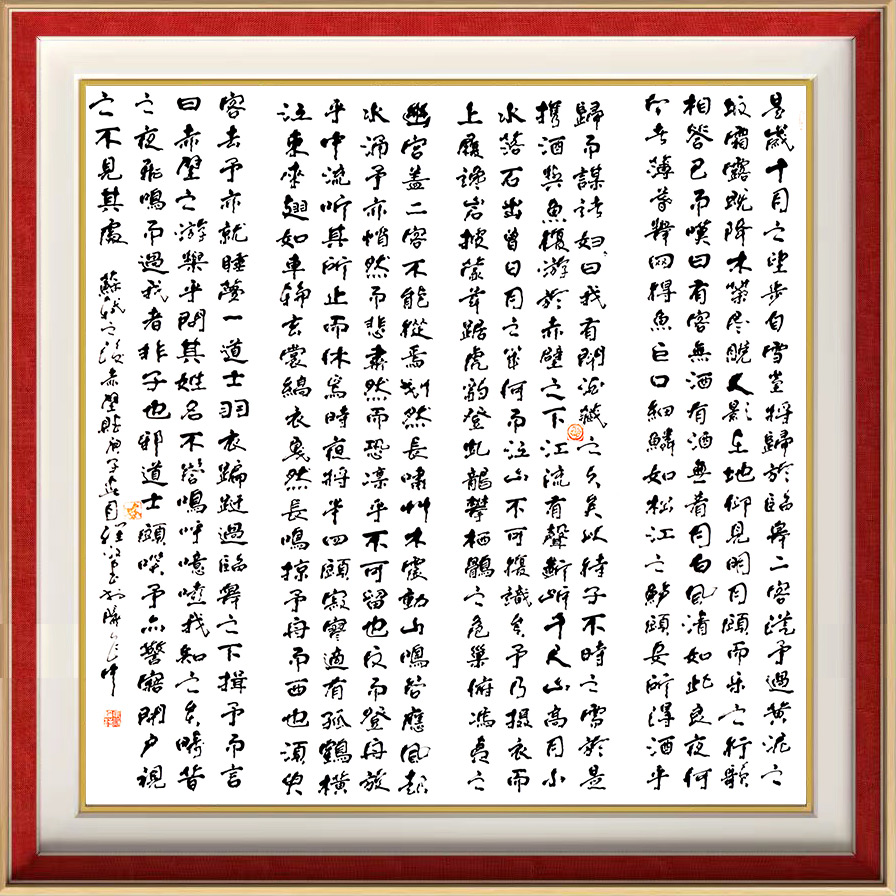 是歲十月之望步自雪堂將歸於臨皋二客從予過黃泥之
坂霜露既降木葉盡脫人影在地仰見明月顧而樂之行歌
相答已而嘆曰有客無酒有酒無肴月白風清如此良夜何
今者薄暮舉網得魚巨口細鱗如松江之鱸顧安所得酒乎
歸而謀諸婦曰我有鬥酒藏之久矣以待子不時之需於是
攜酒與魚復游於赤壁之下江流有聲斷岸千尺山高月小
水落石出曾日月之幾何而江山不可復識矣予乃攝衣而
上履巉岩披蒙茸踞虎豹登虬龍攀栖鶻之危巢俯馮夷之
幽宮蓋二客不能從焉划然長嘯艸木震動山鳴谷應風起
水涌予亦悄然而悲肅然而恐凜乎不可留也反而登舟放
乎中流聽其所止而休焉時夜將半四顧寂寥適有孤鶴橫
江東來翅如車輪玄裳縞衣戛然長鳴掠予舟而西也須臾
客去予亦就睡夢一道士羽衣蹁躚過臨皋之下揖予而言
曰赤壁之游樂乎問其姓名不答嗚呼噫嘻我知之矣疇昔
之夜飛鳴而過我者非子也邪道士顧笑予亦驚寤開戶視
之不見其處 蘇軾之後赤壁賦庚子